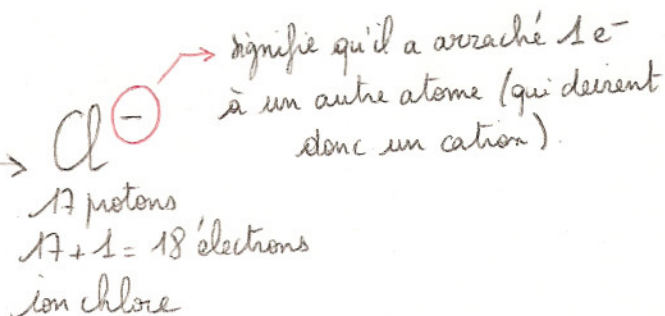 signifie qu'il a arraché 1 e⁻
à un autre atome (qui devient
donc un cation).
→ Cl⁻
17 protons
17 + 1 = 18 électrons
ion chlore